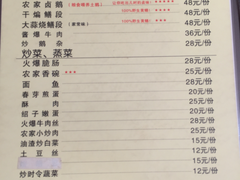 农家卤鹅 48元/份
干煸鳝段 48元/份
大蒜烧鳝段 48元/份
酱爆牛肉 36元/份
炒鹅杂 28元/份
炒菜、蒸菜
火爆脆肠 28元/份
农家香碗 ★★★ 25元/份
面鱼 28元/份
春芽煎蛋 20元/份
酥肉 25元/份
蛆子嫩蛋 20元/份
火爆牛肉丝 28元/份
农家小炒肉 25元/份
油渣炒白菜 15元/份
土豆丝 12元/份
15元/份
炒时令蔬菜 12元/份